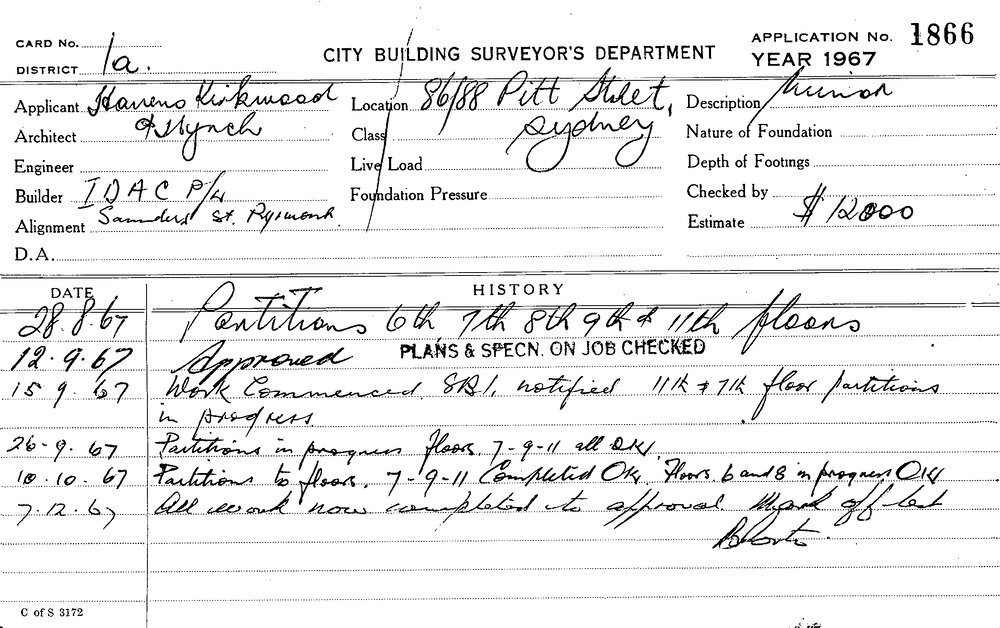 CARD No.
DISTRICT 1a.
CITY BUILDING SURVEYOR'S DEPARTMENT
APPLICATION No. 1866
YEAR 1967
Applicant Kirkwood
Architect & Lynch
Engineer
Builder I D A C P/L
Alignment Saunders St. Pyrmont.
D.A.
Location 86/88 Pitt Street,
Sydney
Class
Live Load
Foundation Pressure
Description Minor
Nature of Foundation
Depth of Footings
Checked by
Estimate $ 12000
DATE HISTORY
28.8.67 Partitions 6th 7th 8th 9th & 11th floors
12.9.67 Approved PLANS & SPECN. ON JOB CHECKED
15 9. 67 Work Commenced. notified 11th & 7th floor partitions
in progress
26-9. 67 Partitions in progress floors. 7-9-11 all OK.
10.10.67 Partitions to floors. 7-9-11 Completed OK. Floors 6 and 8 in progress OK
7.12.67 All work now completed to approval Mark off
C of S 3172